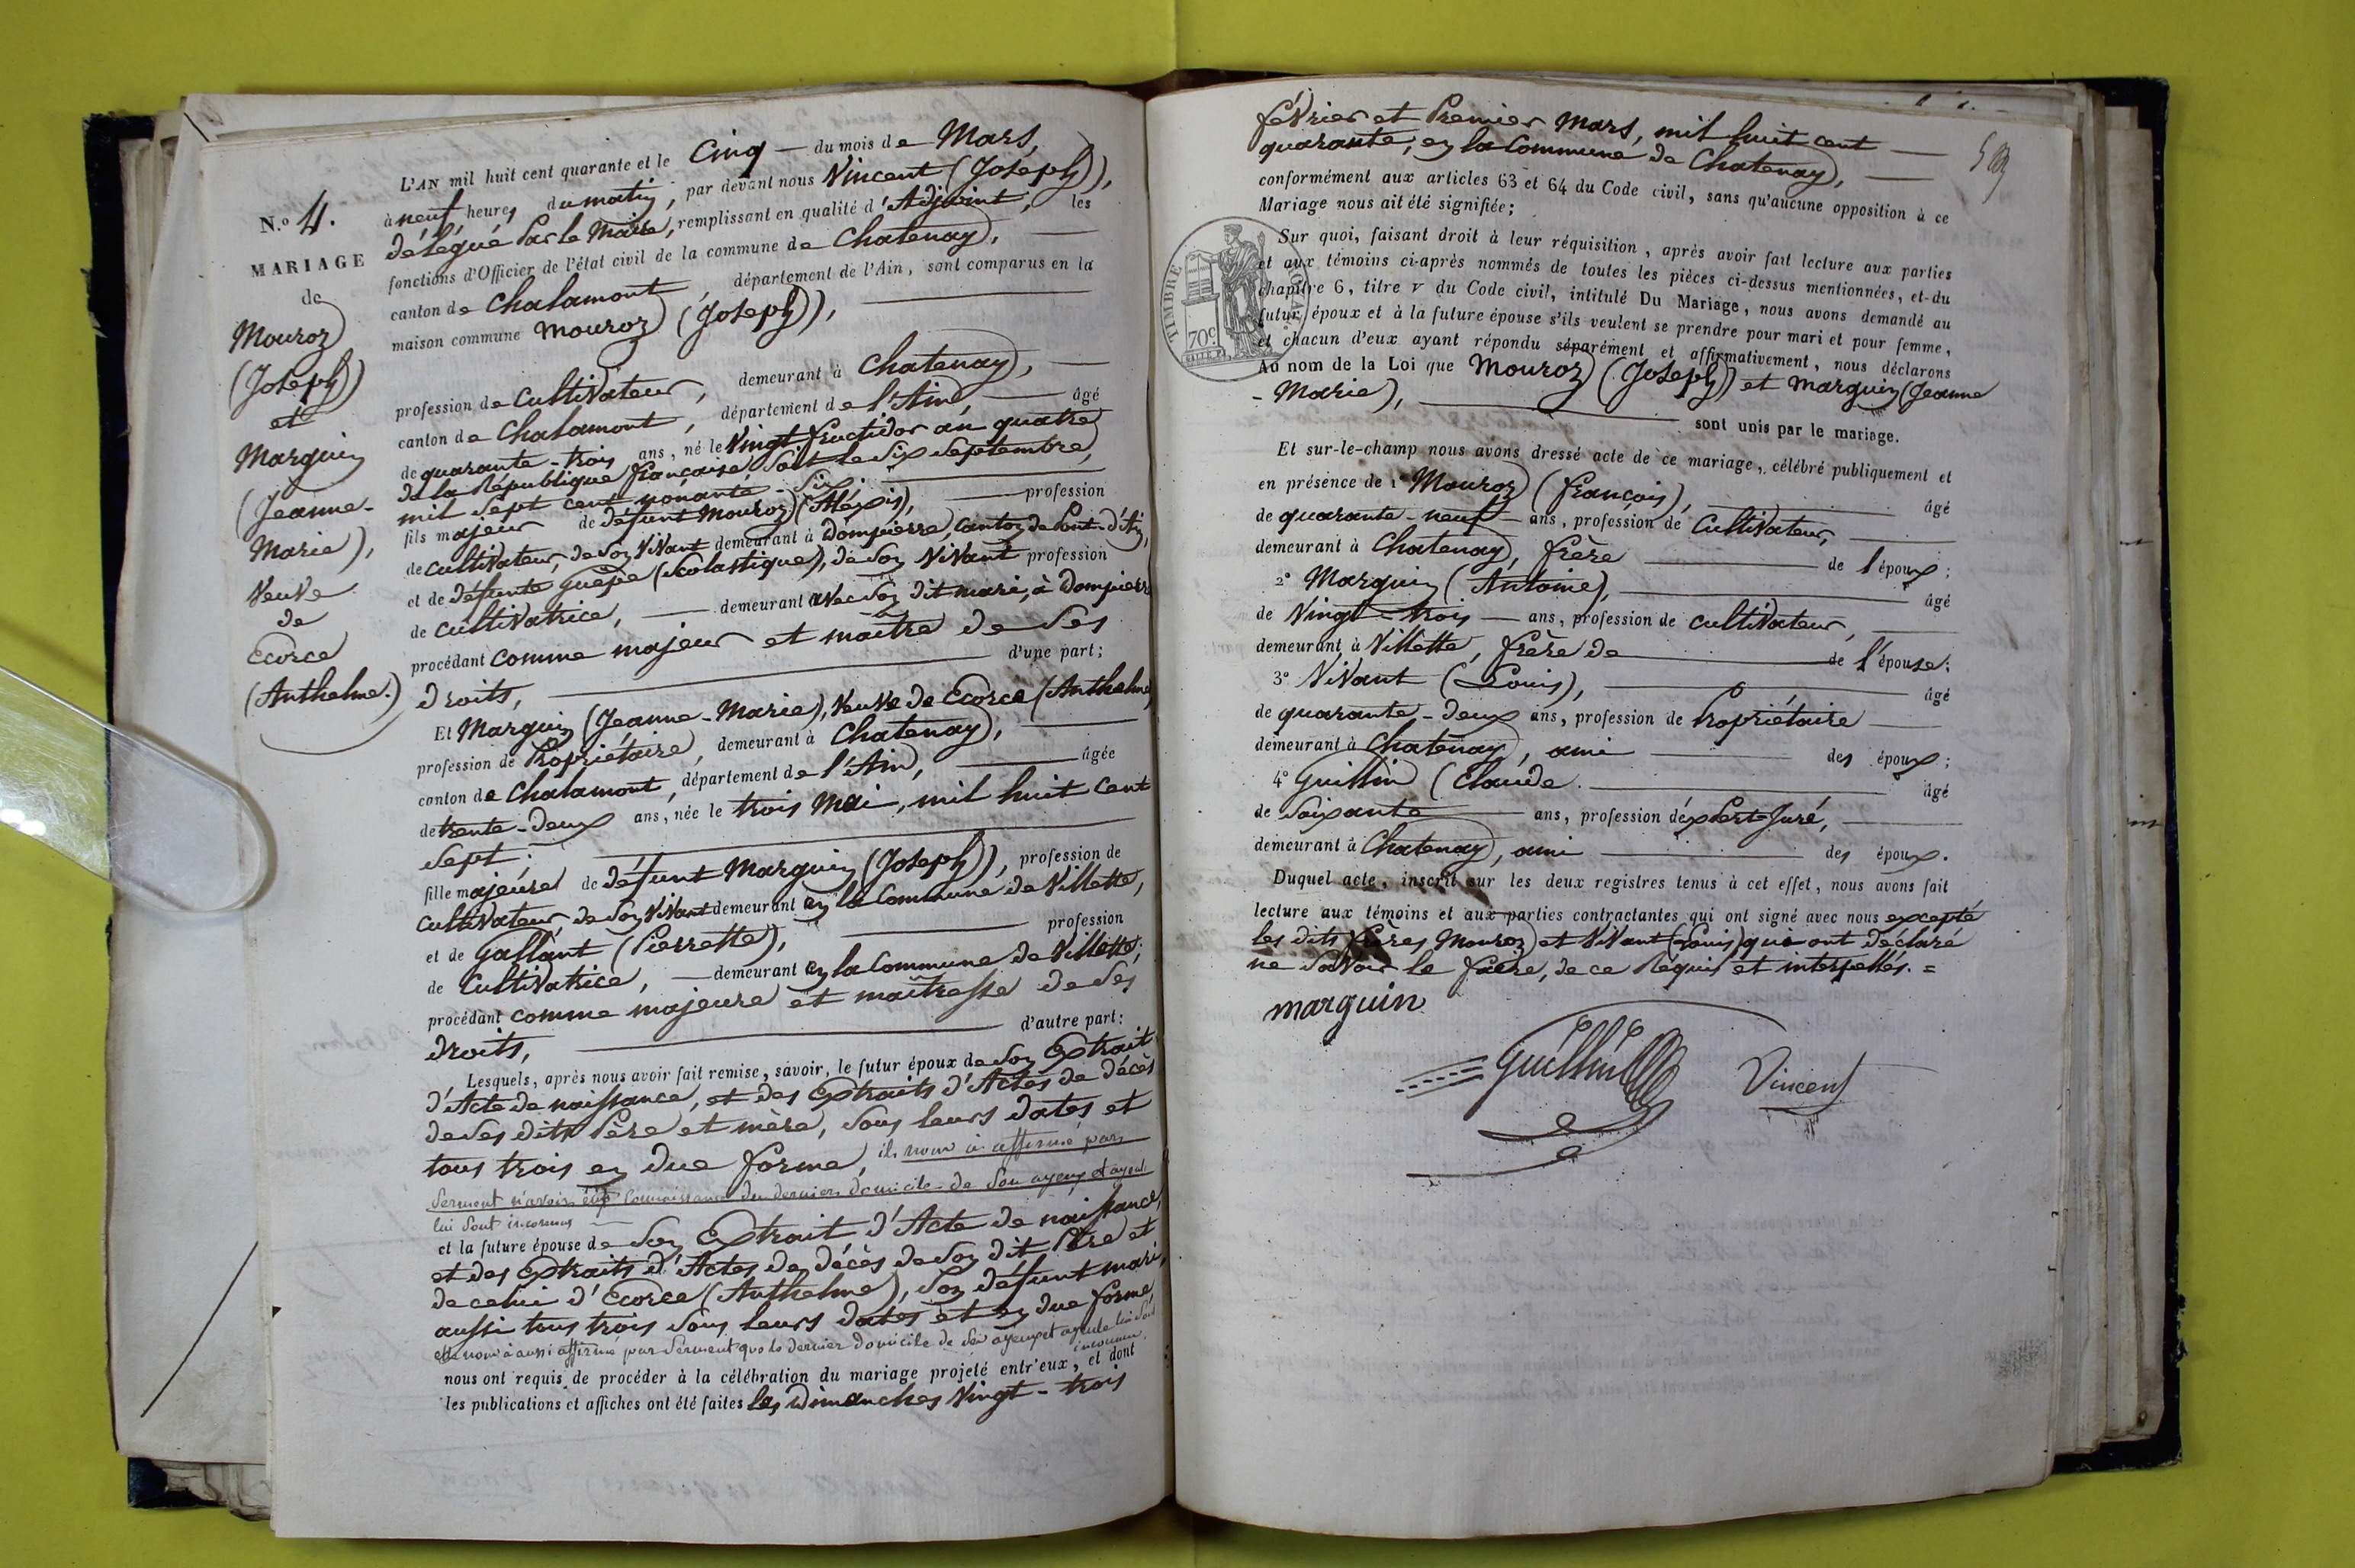 N.o 4.
MARIAGE
de
Mouroz
(Joseph)
et
Marguin
(Jeanne-
Marie),
veuve
de
Ecorce
(Anthelme.)
L'AN mil huit cent quarante et le Cinq — du mois de Mars,
à neuf heures du matin, par devant nous Vincent (Joseph),
délégué par le Maire, remplissant en qualité d'Adjoint, les
fonctions d'Officier de l'état civil de la commune de Chatenay,
canton de Chalamont, département de l'Ain, sont comparus en la
maison commune Mouroz (Joseph),
profession de Cultivateur, demeurant à Chatenay,
canton de Chalamont, département de l'Ain, âgé
de quarante-trois ans, né le vingt fructidor an quatre
de la République française soit le six septembre,
mil sept cent nonante-six;
fils majeur de défunt Mouroz (Aléxis), profession
de cultivateur, de son vivant demeurant à Dompierre, canton de Pont-d'Ain,
et de défunte Guêpe (Scolastique), de son vivant profession
de cultivatrice, demeurant avec son dit mari, à Dompierre
procédant comme majeur et maître de ses
droits, d'une part;
Et Marguin (Jeanne-Marie), veuve de Ecorce (Anthelme)
profession de Propriétaire, demeurant à Chatenay,
canton de Chalamont, département de l'Ain, âgée
de trente-deux ans, née le trois Mai, mil huit cent
sept;
fille majeure de défunt Marguin (Joseph), profession de
cultivateur, de son vivant demeurant en la commune de Villette,
et de Gallant (Pierrette), profession
de Cultivatrice, — demeurant en la commune de Villette;
procédant comme majeure et maîtresse de ses
droits, d'autre part:
Lesquels, après nous avoir fait remise, savoir, le futur époux de son Extrait
d'Acte de naissance, et des Extraits d'Actes de décès
de ses dits Père et mère, sous leurs dates et
tous trois en due forme, il nous à affirmé par
serment n'avoir eûe connaissance du dernier domicile de son ayeux et ayeule
lui sont inconnus
et la future épouse de son Extrait d'Acte de naissance,
et des Extraits d'Actes de décès de son dit Père et
de celui d'Ecorce (Anthelme), son défunt mari,
aussi tous trois sous leurs dates et en due forme,
elle nous à aussi affirmé par serment que le dernier domicile de ses ayeux et ayeule lui sont
inconnu.
nous ont requis de procéder à la célébration du mariage projeté entr'eux, et dont
les publications et affiches ont été faites les Dimanches vingt-trois
février et Premier Mars, mil huit cent
quarante, en la Commune de Chatenay,
conformément aux articles 63 et 64 du Code civil, sans qu'aucune opposition à ce
Mariage nous ait été signifiée;
TIMBRE ROYAL
70c
Sur quoi, faisant droit à leur réquisition, après avoir fait lecture aux parties
et aux témoins ci-après nommés de toutes les pièces ci-dessus mentionnées, et du
chapitre 6, titre v du Code civil, intitulé Du Mariage, nous avons demandé au
futur époux et à la future épouse s'ils veulent se prendre pour mari et pour femme,
et chacun d'eux ayant répondu séparément et affirmativement, nous déclarons
Au nom de la Loi que Mouroz (Joseph) et Marguin (Jeanne
-Marie),
sont unis par le mariage.
Et sur-le-champ nous avons dressé acte de ce mariage, célébré publiquement et
en présence de 1° Mouroz (françois), âgé
de quarante-neuf — ans, profession de Cultivateur,
demeurant à Chatenay, frère de l'époux;
2° Marguin (Antoine), âgé
de vingt-trois — ans, profession de cultivateur,
demeurant à Villette, frère de de l'épouse;
3° Vivant (Louis), âgé
de quarante-deux ans, profession de Propriétaire
demeurant à Chatenay, ami des époux;
4° Guillin (Claude. âgé
de Soixante ans, profession d'éxpert-Juré,
demeurant à Chatenay, ami des époux.
Duquel acte, inscrit sur les deux registres tenus à cet effet, nous avons fait
lecture aux témoins et aux parties contractantes qui ont signé avec nous excepté
les dits frères Mouroz et Vivant (Louis) qui ont déclaré
ne savoir le faire, de ce réquis et interpellés. =
marguin
Guillin Vincent